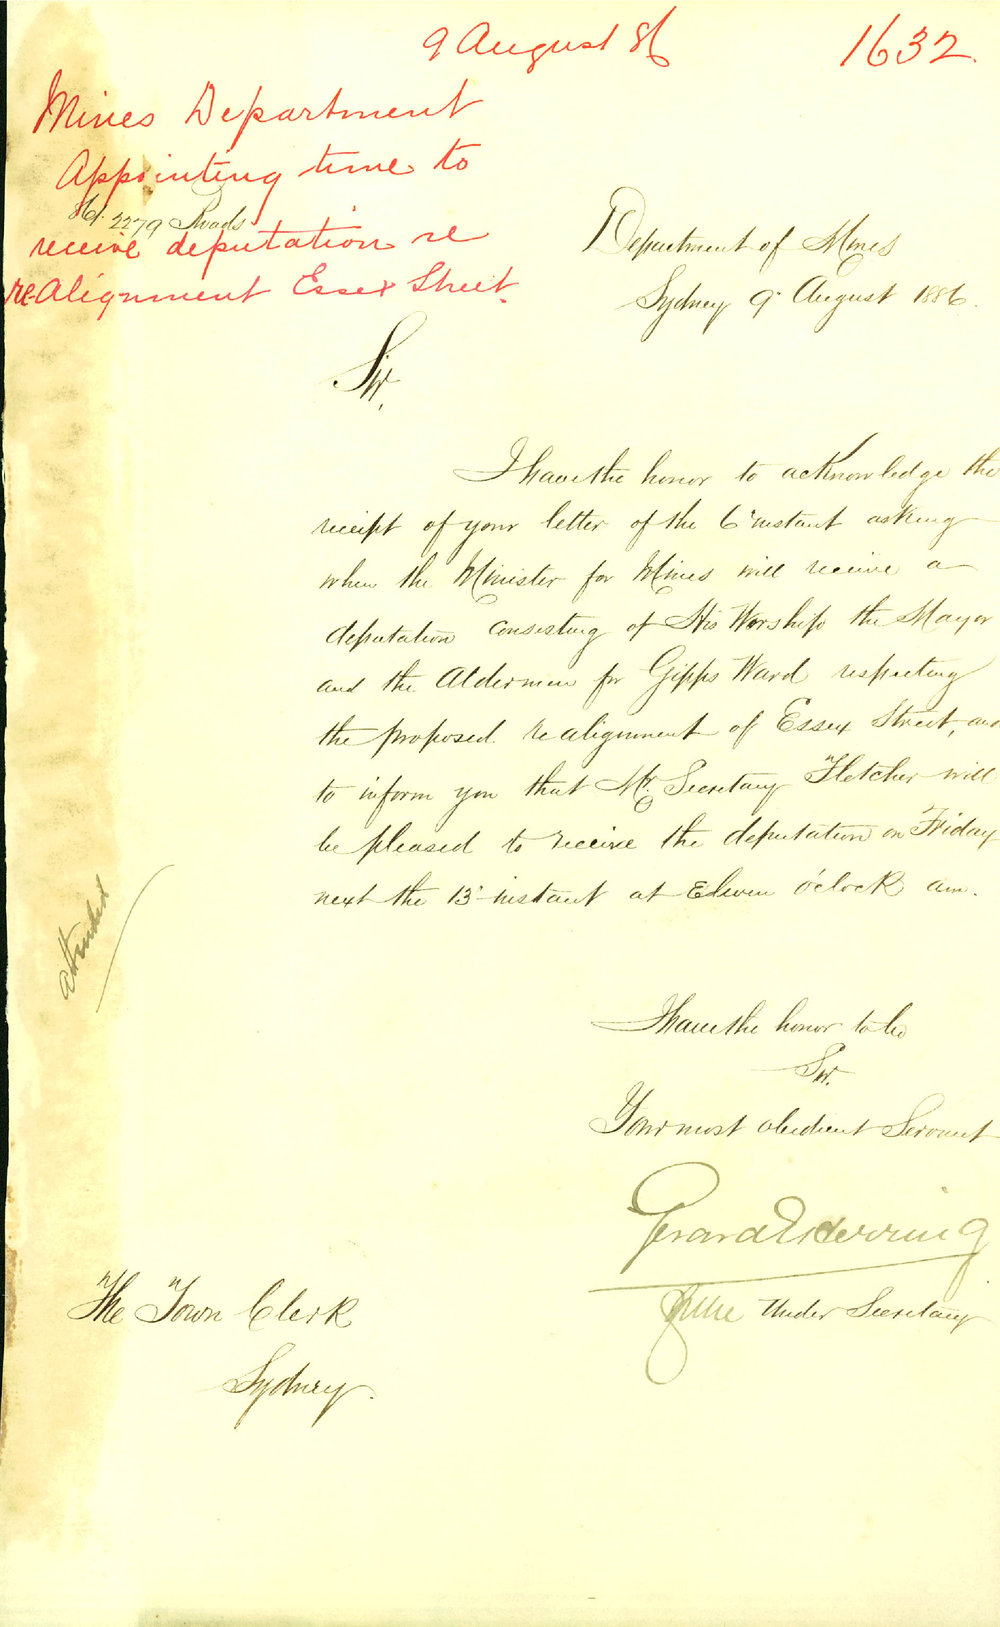 9 August 86
1632.
Mines Department
Appointing time to
86. 2279 Roads
receive deputation re
re-Alignment Essex Street.
Department of Mines
Sydney 9 August 1886.
Sir,
I have the honor to acknowledge the
receipt of your letter of the 6 instant asking
when the Minister for Mines will receive a
deputation consisting of His Worship the Mayor
and the Aldermen for Gipps Ward respecting
the proposed realignment of Essex Street, and
to inform you that Mr. Secretary Fletcher will
be pleased to receive the deputation on Friday
next the 13 instant at Eleven o'clock am.
attended
I have the honor to be
Sir.
Your most obedient Servant
Gerard Herring
Under Secretary
The Town Clerk
Sydney.